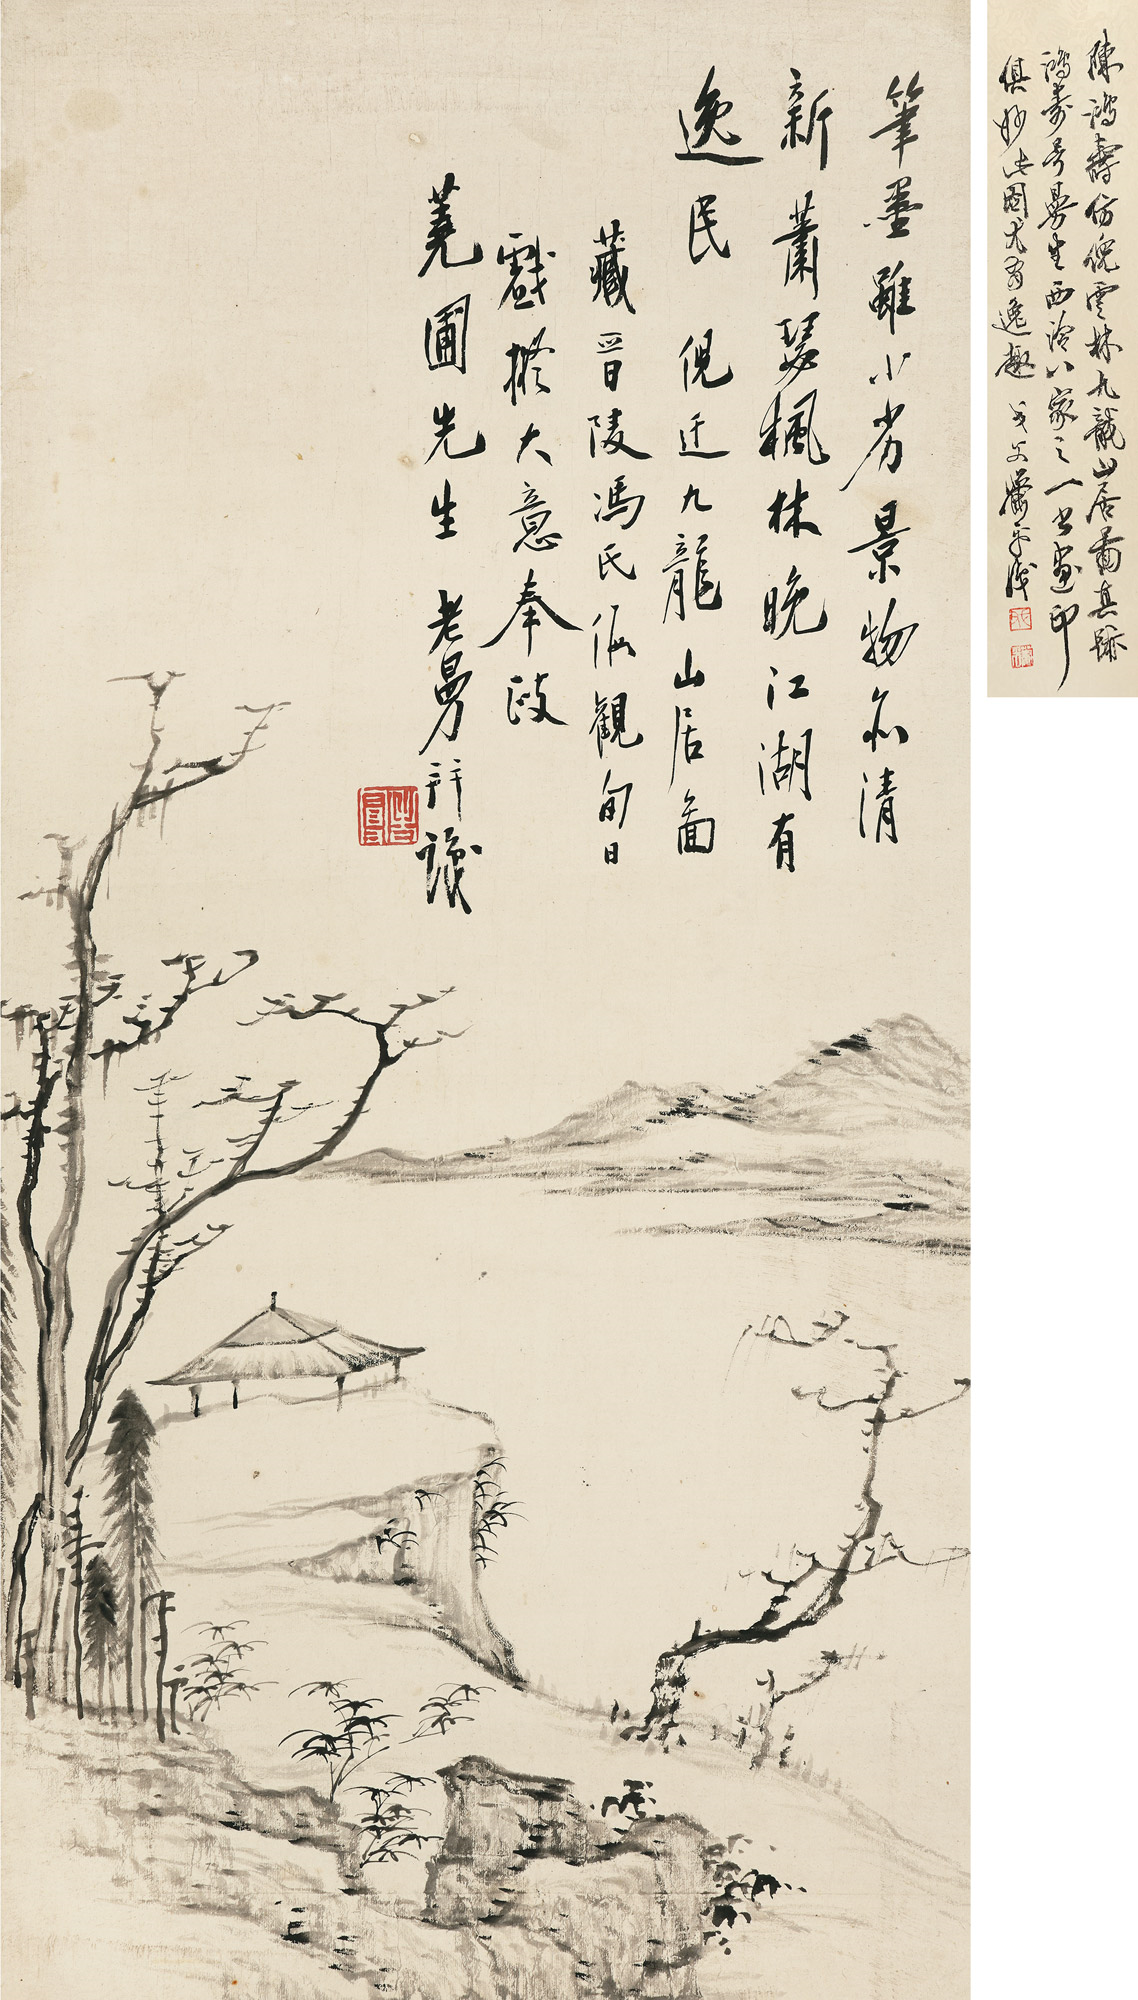 筆墨雖小劣景物亦清
新蕭瑟楓林晚江湖有
逸民 倪迂九龍山居圖
藏晉陵馮氏假觀旬日
戲橅大意奉政
蕘圃先生 老曼并識
陳鴻壽仿倪雲林九龍山居圖真跡
鴻壽号曼生西泠八家之一書畫印
俱妙此圖尤有逸趣 戈父蕭平識